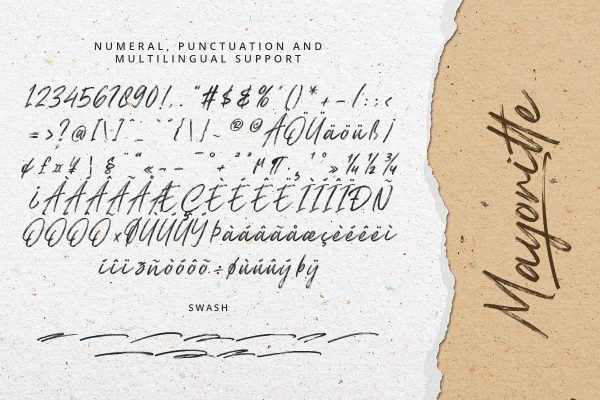 NUMERAL, PUNCTUATION AND
MULTILINGUAL SUPPORT
1234567890!.. "#$&%'()*+-/:;<
=>?@[\]^_`{|}~®©ÄÖÜäöüß
¢£¤¥¦§¨ª«¬-¯°²³µ¶¸¹º»¼½¾
¿ÀÁÂÃÅÆÇÈÉÊËÌÍÎÏÐÑ
ÒÓÔÕ×ØÙÚÛÝÞàáâãåæçèéêëì
íîïðñòóôõ÷øùúûýþÿ
SWASH
Mayonitte